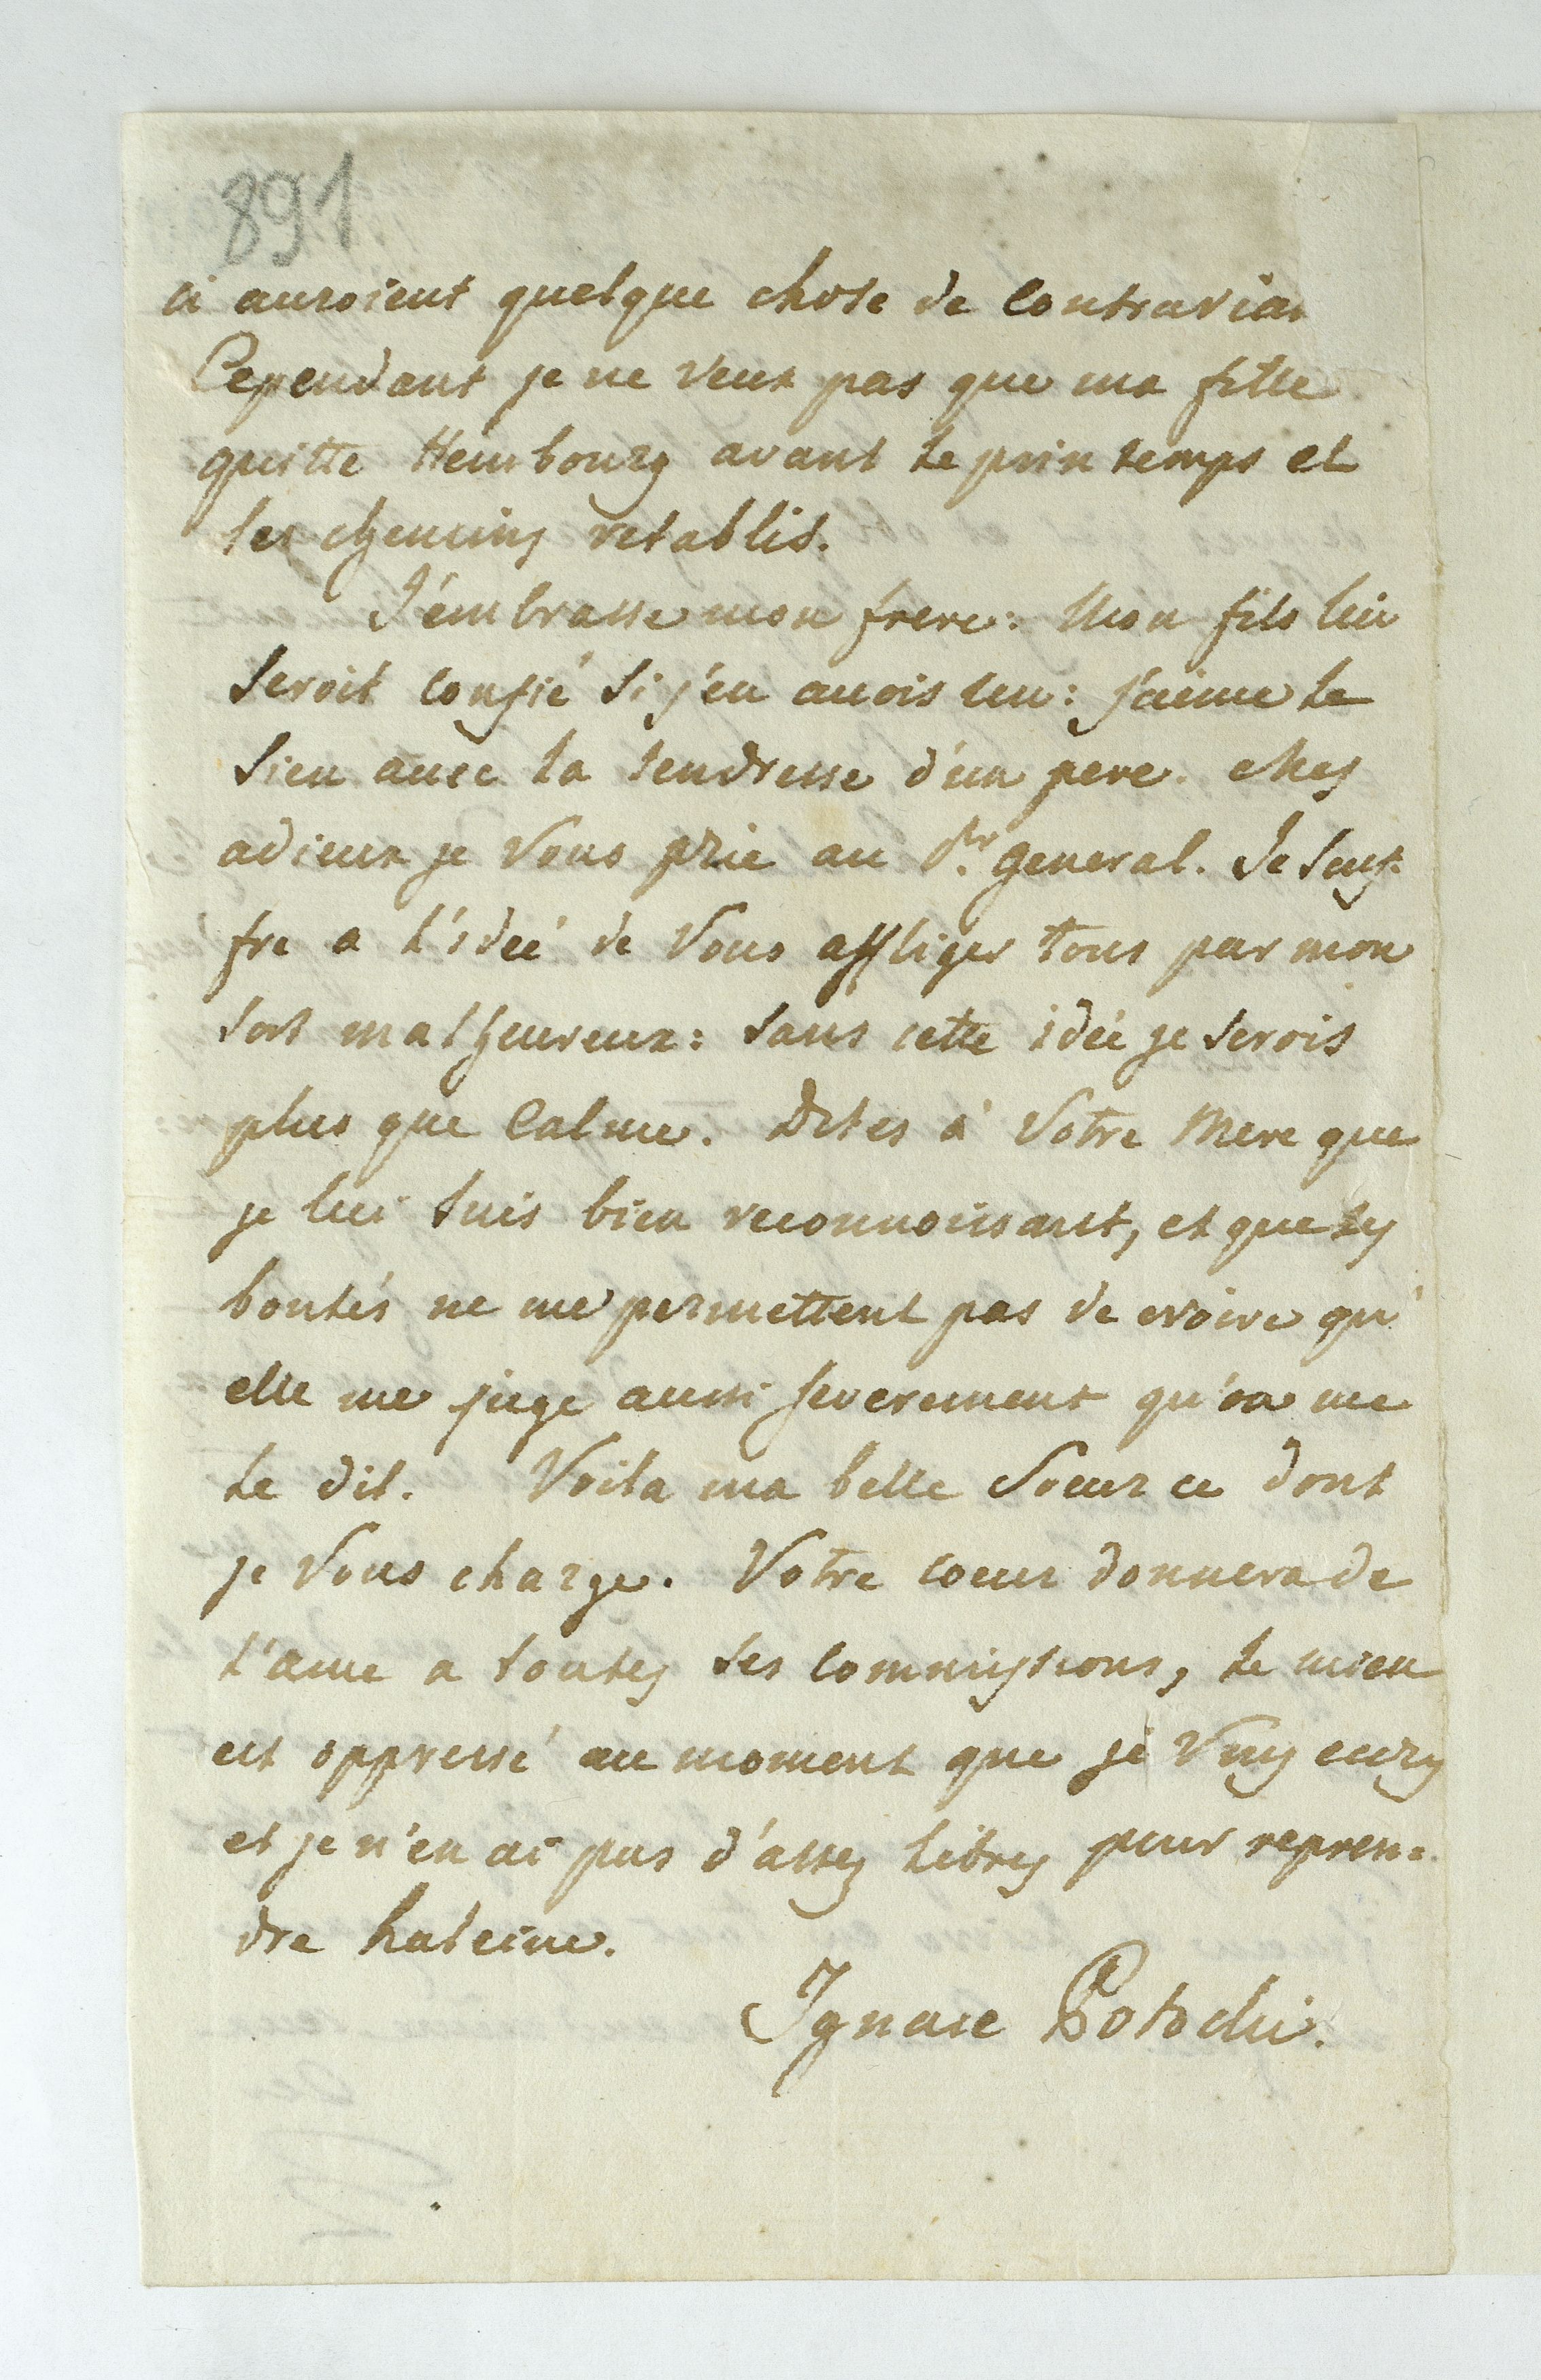 891
ci auroient quelque chose de contrarian
Cependant je ne veux pas que ma fille
quitte Hembourg avant le printemps et
les chemins retablis.
J'embrasse mon frere: Mon fils lui
seroit confié si j'en avois un: j'aime le
sien avec la tendresse d'un pere. Mes
adieux je Vous prie au Pr. general. Je souf-
fre a l'ideé de Vous affliger tous par mon
sort malheureux: sans cette idée je serois
plus que calme. Dites à Votre Mere que
je lui suis bien reconnoissant, et que ses
bontés ne me permettent pas de croire qu'
elle me juge aussi severement qu'on me
le dit. Voila ma belle Soeur ce dont
je Vous charge. Votre coeur donnera de
l'ame a toutes ces commissions, le mien
est oppressé au moment que je Vous ecris
et je n'en ai pas d'assez libres pour repren=
dre haleine.
Ignace Potocki.